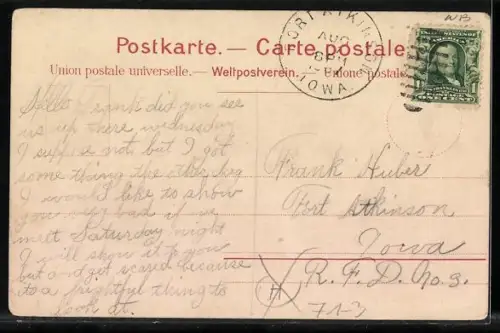 WB
FORT ATKINSON
AUG
6 PM
IOWA.
1 ONE CENT 1
Postkarte. — Carte postale.
Union postale universelle. — Weltpostverein. — Unione postale
Hello Frank did you see
us up there wednesday
I suppose not but I got
some thing the other day
I would like to show
you very bad if we
meet Saturday night
I will show it to you
but dont get scared because
its a frightful thing to
look at.
Frank Huber
Fort Atkinson
Iowa
R. F. D. No. 3.
H
713